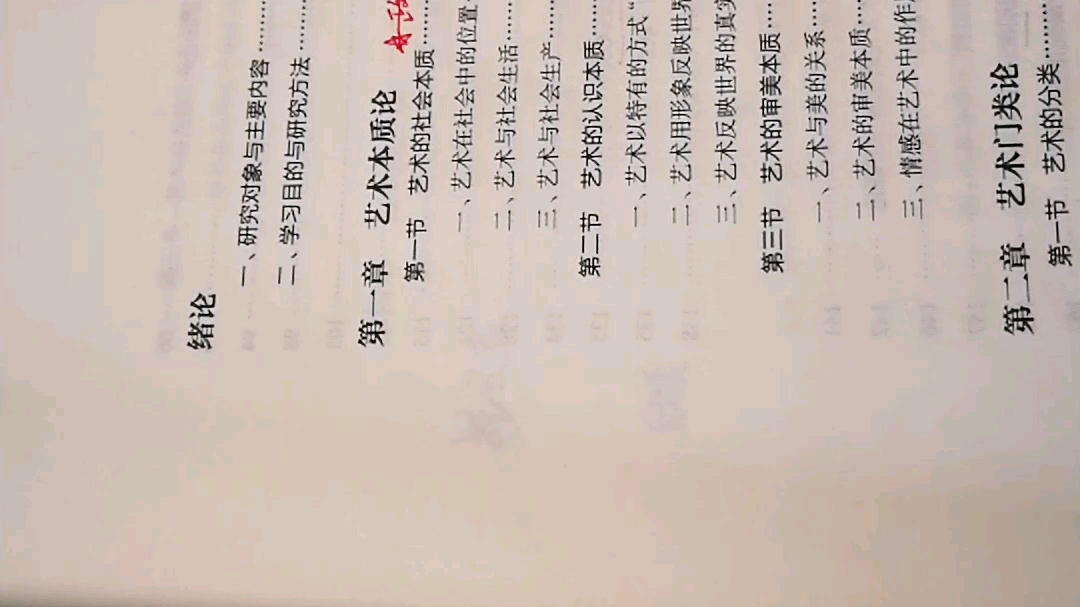 绪论
一、研究对象与主要内容
二、学习目的与研究方法
第一章 艺术本质论
第一节 艺术的社会本质
一、艺术在社会中的位置
二、艺术与社会生活
三、艺术与社会生产
第二节 艺术的认识本质
一、艺术以特有的方式“
二、艺术用形象反映世界
三、艺术反映世界的真实
第三节 艺术的审美本质
一、艺术与美的关系
二、艺术的审美本质
三、情感在艺术中的作
第二章 艺术门类论
第一节 艺术的分类